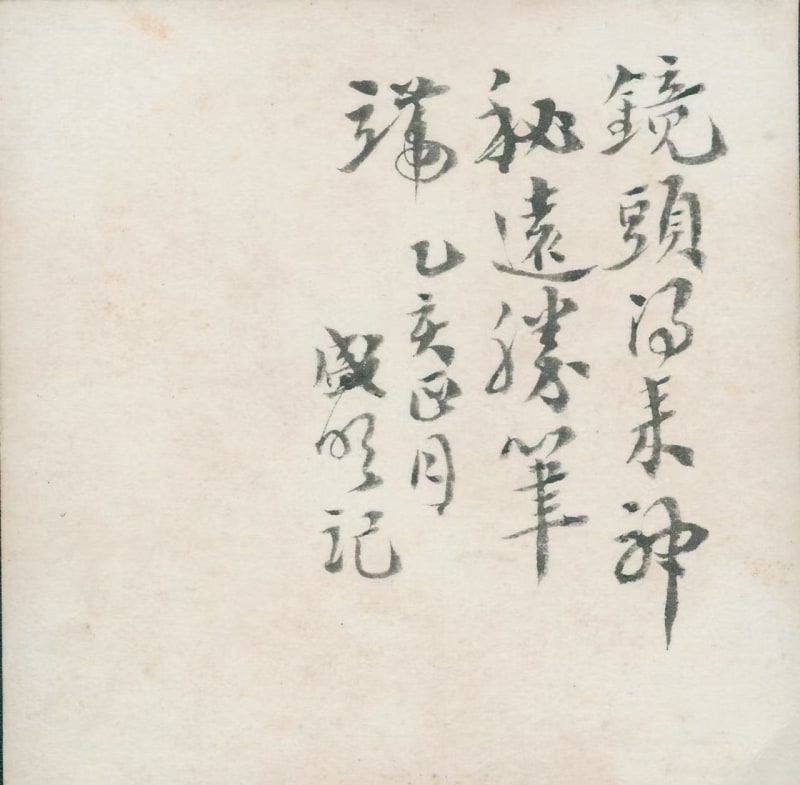 鏡頭得來神
秘遠勝筆
端 乙亥正月
盛明記